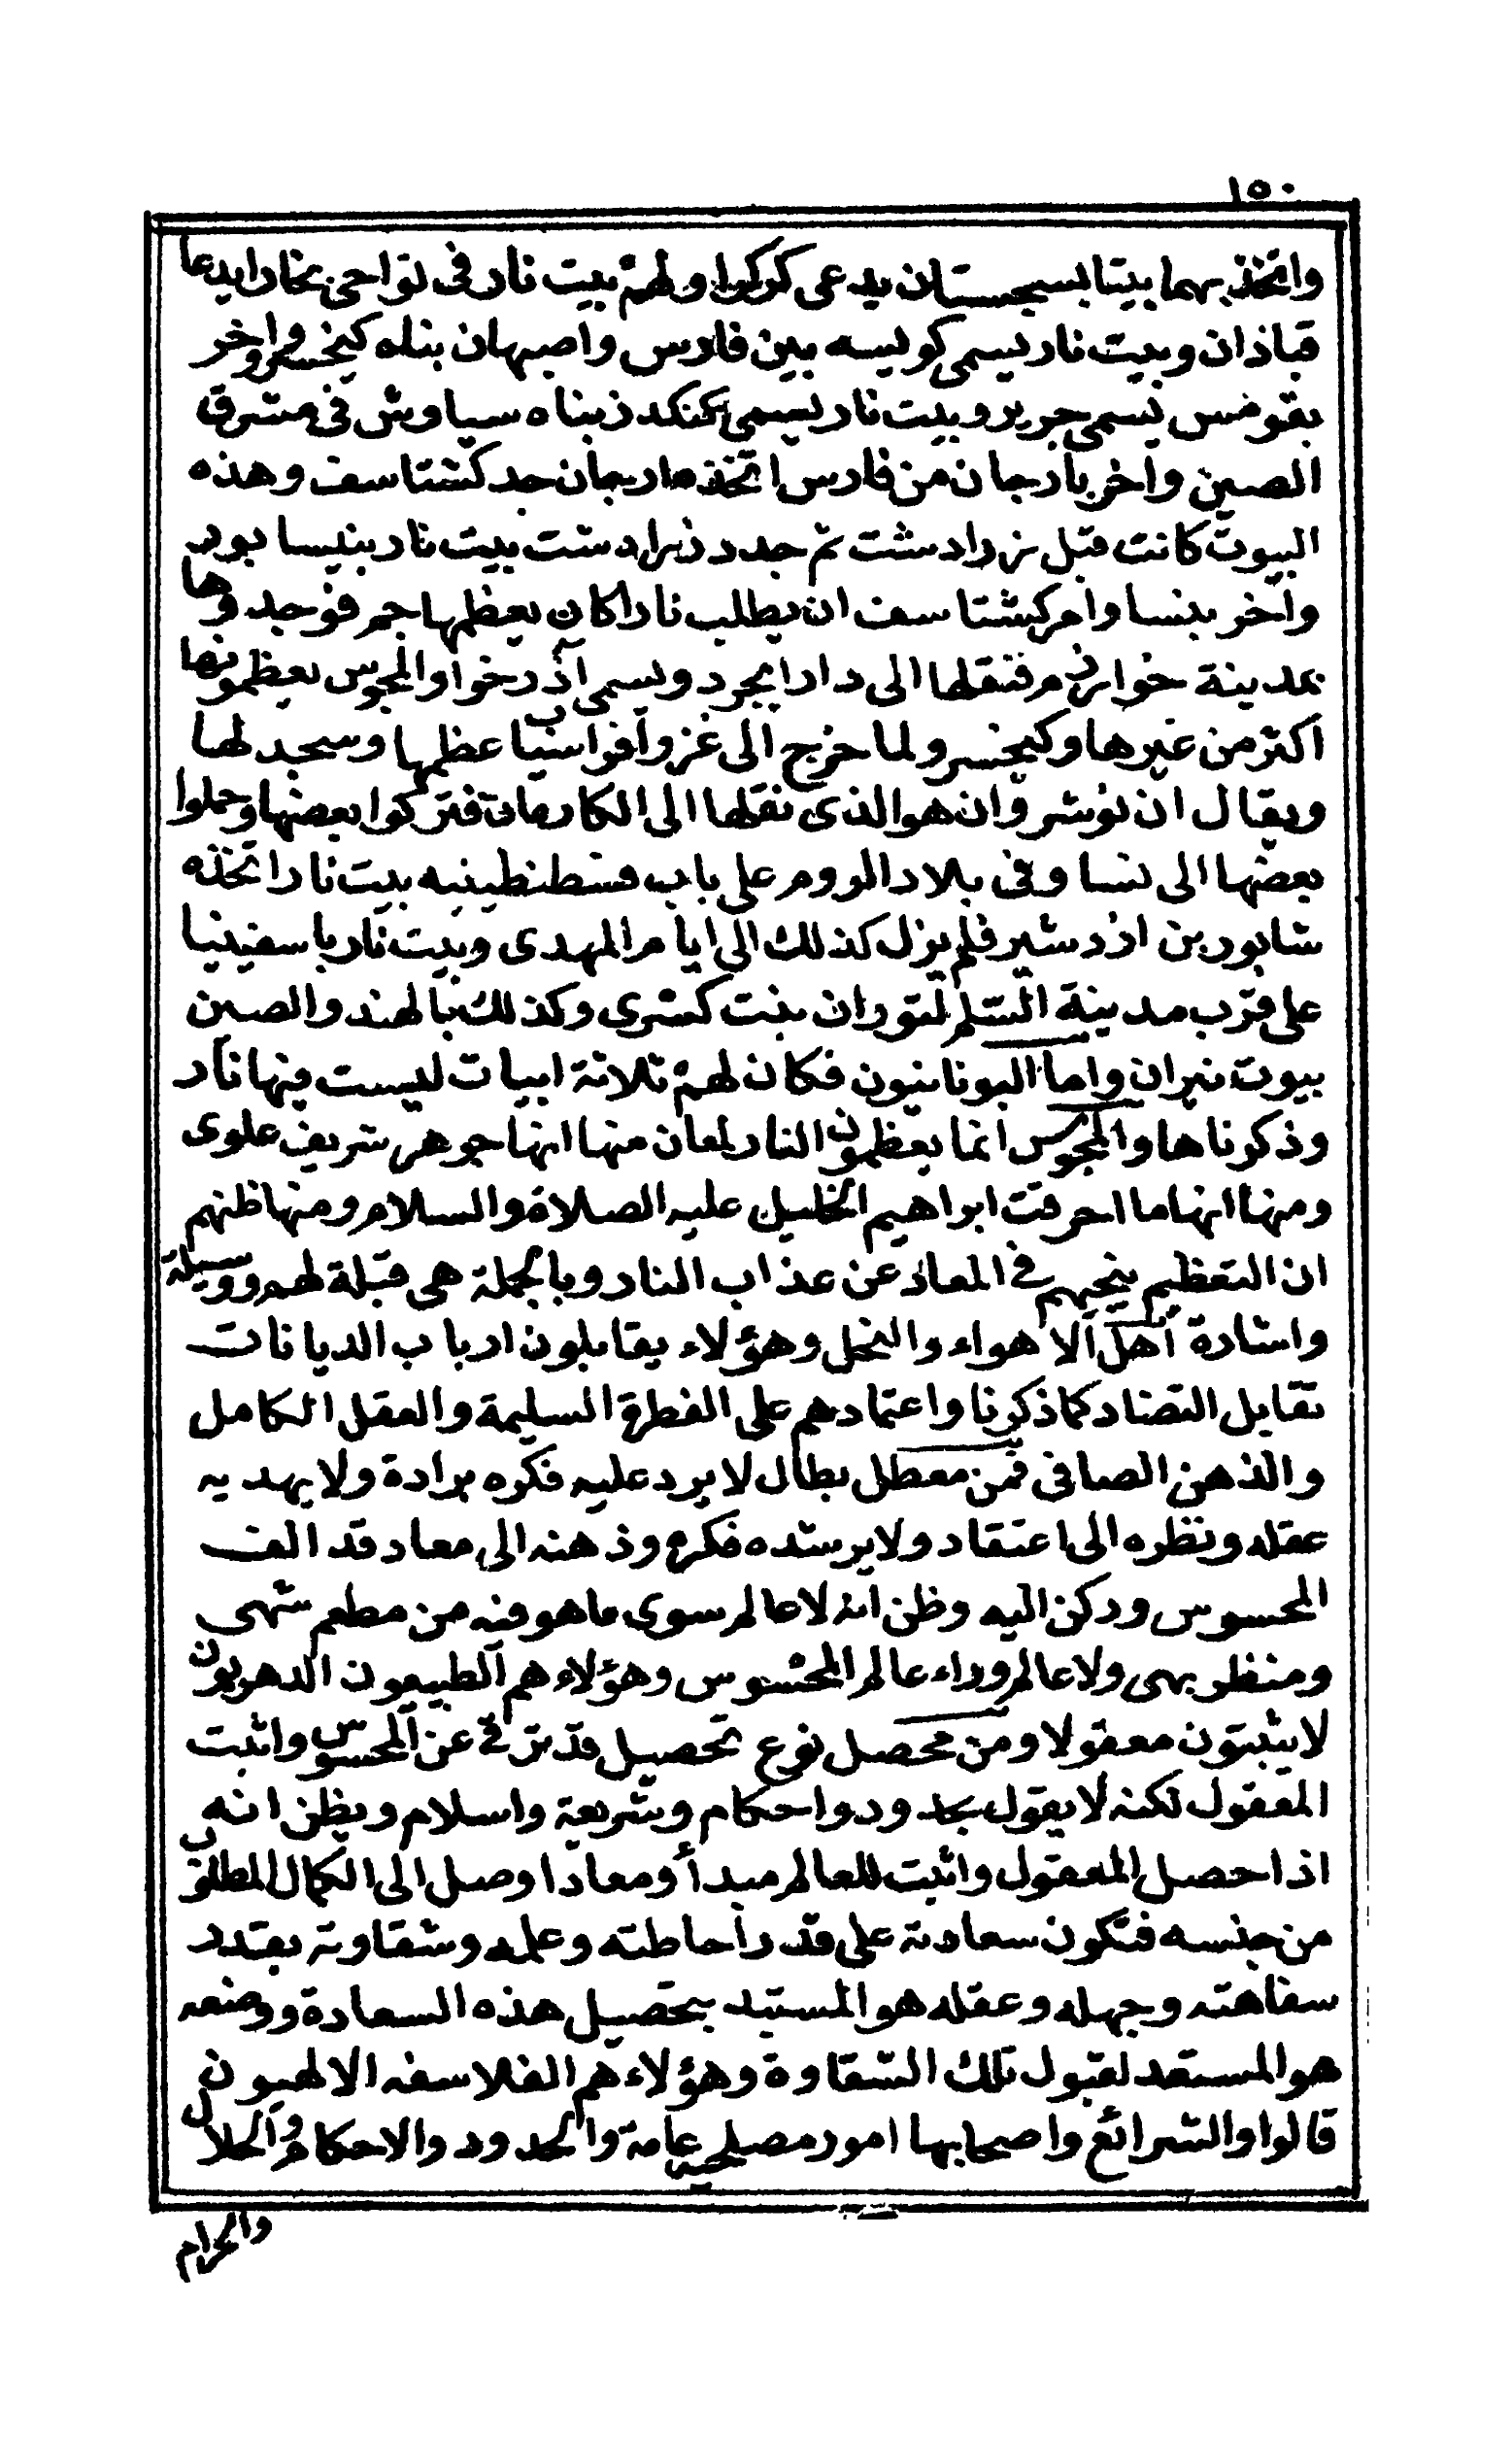 ١٥٠
واتخذ بهما بيتا بسجستان يدعى كركوا ولهم بيت نار في نواحى بخارا يدعا
قباذان وبيت نار يسمى كويسه بين فارس واصبهان بناه كيخسرو واخر
بقومس يسمى جرير وبيت نار يسمى كنكدز بناه سياوش في مشرق
الصين واخر بارجان من فارس اتخذه ارجان جد كشتاسف وهذه
البيوت كانت قبل زرادشت ثم جدد زرادشت بيت نار بنيسابور
واخر بنسا وامر كشتاسف ان يطلب نارا كان يعظمها جم فوجدوها
بمدينة خوارزم فنقلها الى دارابجرد ويسمى آذرخوا والمجوس يعظمونها
اكثر من غيرها وكيخسرو لما خرج الى غزو افراسياب عظمها وسجد لها
ويقال ان نوشروان هو الذى نقلها الى الكارمان فتركوا بعضها وحملوا
بعضها الى نسا وفى بلاد الروم على باب قسطنطينيه بيت نار اتخذه
شابور بن ازدشير فلم يزل كذلك الى ايام المهدى وبيت نار باسفينيا
على قرب مدينة السلم لتوران بنت كسرى وكذلك بالهند والصين
بيوت نيران واما اليونانيون فكان لهم ثلاثة ابيات ليست فيها نار
وذكرناها والمجوس انما يعظمون النار لمعان منها انها جوهر شريف علوى
ومنها انها ما احرقت ابراهيم الخليل عليه الصلاة والسلام ومنها ظنهم
ان التعظيم ينجيهم في المعاد عن عذاب النار وبالجملة هى قبلة لهم ووسيلة
واشارة أهل الاهواء والنحل وهؤلاء يقابلون ارباب الديانات
تقابل التضاد كما ذكرنا واعتمادهم على الفطرة السليمة والعقل الكامل
والذهن الصافى فمن معطل بطال لا يرد عليه فكره برادة ولا يهديه
عقله ونظره الى اعتقاد ولا يرشده فكره وذهنه الى معاد قد الف
المحسوس وركن اليه وظن انه لا عالم سوى ما هو فيه من مطعم شهى
ومنظر بهى ولا عالم وراء عالم المحسوس وهؤلاء هم الطبيعون الدهريون
لا يثبتون معقولا ومن محصل نوع تحصيل قد ترقى عن المحسوس واثبت
المعقول لكنه لا يقول بحدود واحكام وشريعة واسلام ويظن انه
اذا حصل المعقول واثبت للعالم مبدأ ومعادا وصل الى الكمال المطلوب
من جنسه فتكون سعادته على قدر احاطته وعلمه وشقاوته بقدر
سفاهته وجهله وعقله هو المستبد بتحصيل هذه السعادة ووضعه
هو المستعد لقبول تلك الشقاوة وهؤلاء هم الفلاسفه الالهيون
قالوا والشرائع واصحابها امور مصلحيه عامة والحدود والاحكام والحلال
والحرام